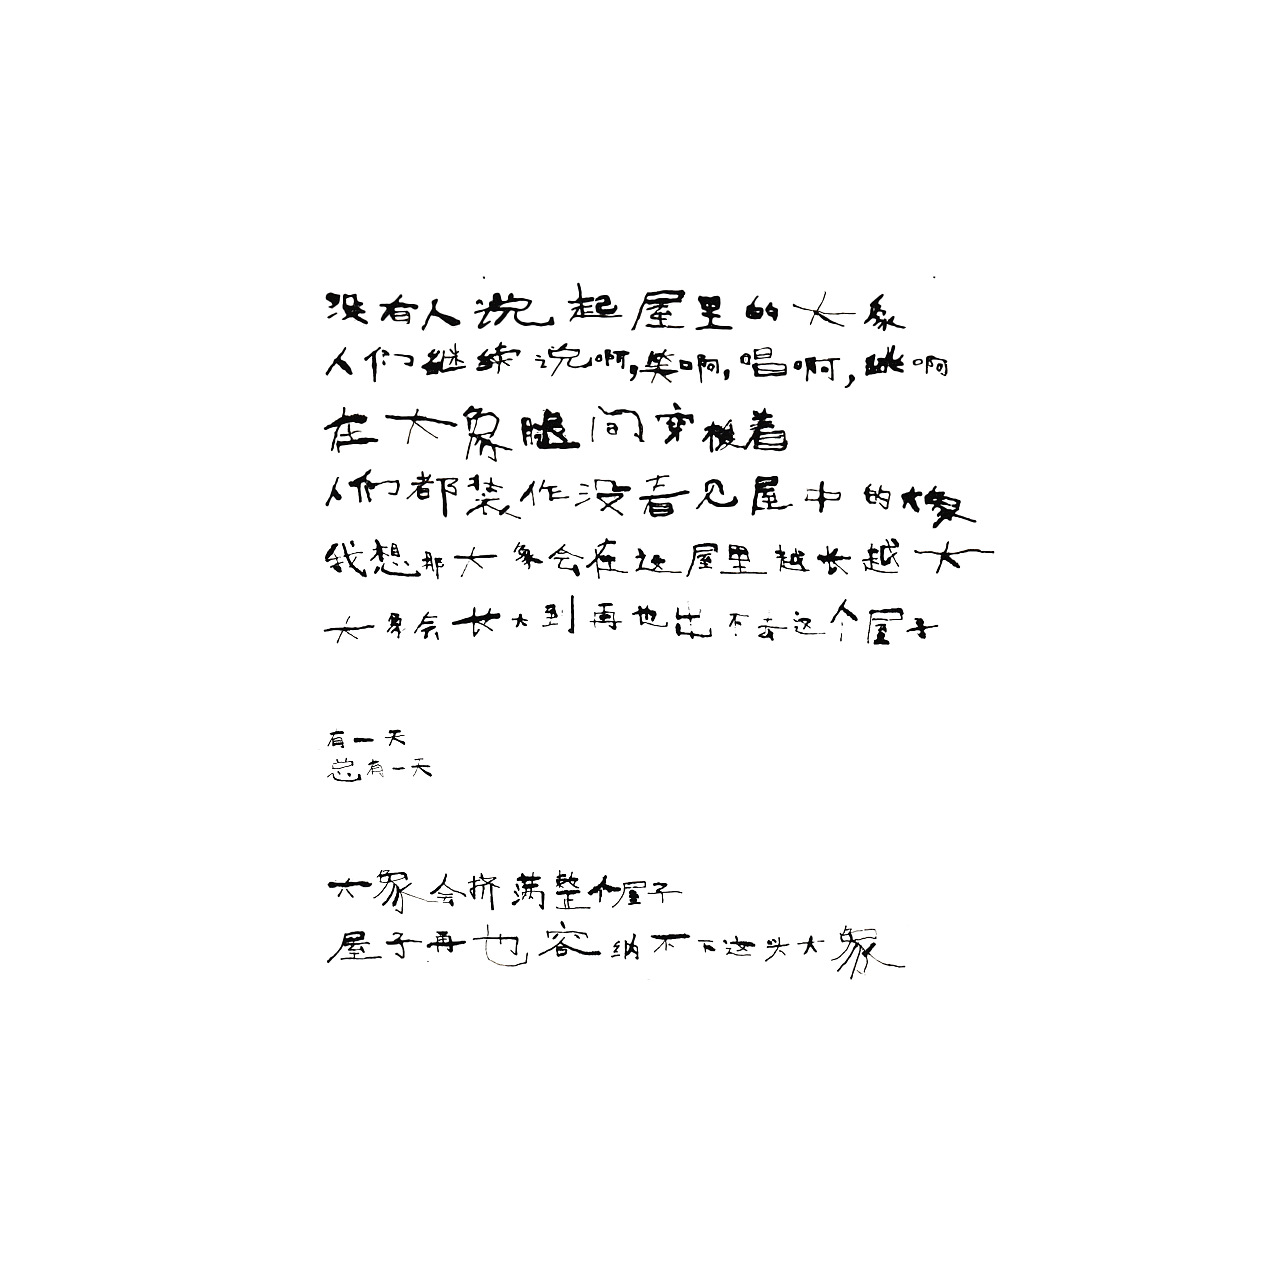 没有人说起屋里的大象
人们继续说啊,笑啊,唱啊,跳啊
在大象腿间穿梭着
人们都装作没看见屋中的大象
我想那大象会在这屋里越长越大
大象会长大到再也出不去这个屋子
有一天
总有一天
大象会挤满整个屋子
屋子再也容纳不下这头大象